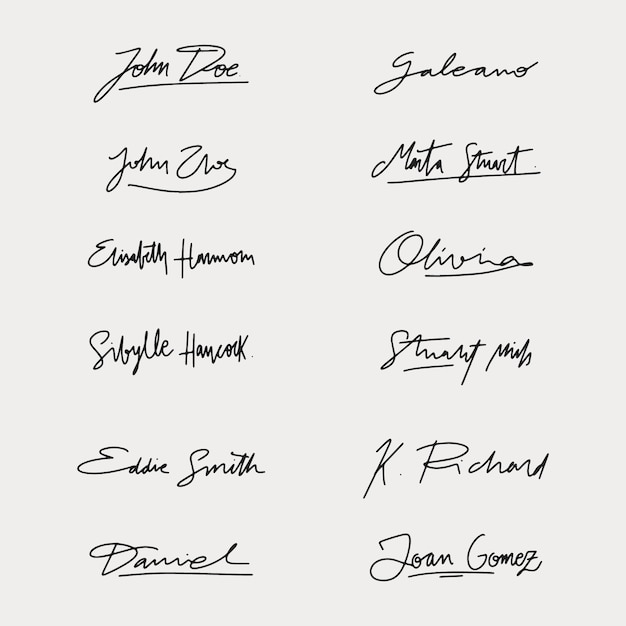 John Doe
Galeano
John
Marta Stuart.
Elisabeth Hammom
Olivina
Sibylle Hancock.
Stuart
Eddie Smith
K. Richard
Daniel
Joan Gomez